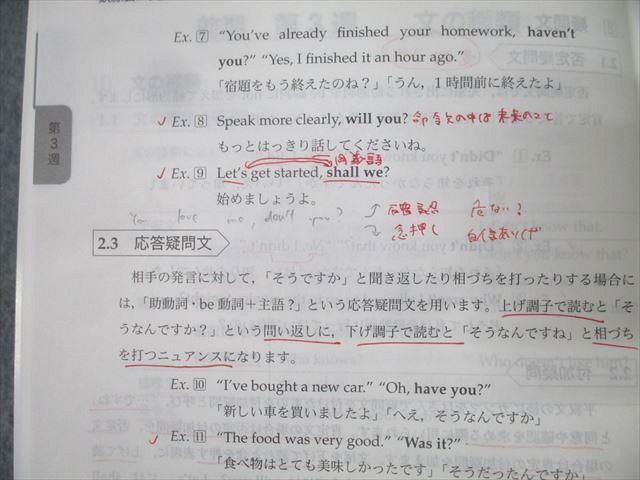 Ex. ⑦ “You've already finished your homework, haven't
you?” “Yes, I finished it an hour ago.”
「宿題をもう終えたのね？」「うん，1時間前に終えたよ」
第3週
Ex. ⑧ Speak more clearly, will you? 命令文の中は未来のこと
もっとはっきり話してくださいね。
Ex. ⑨ Let's get started, shall we?
始めましょう。
You love me, don't you?
危ない？
念押し
2.3 応答疑問文
相手の発言に対して，「そうですか」と聞き返したり相づちを打ったりする場合に
は，「助動詞・be 動詞＋主語？」という応答疑問文を用います。上げ調子で読むと「そ
うなんですか？」という問い返しに，下げ調子で読むと「そうなんですね」と相づち
を打つニュアンスになります。
Ex. ⑩ “I've bought a new car.” “Oh, have you?”
「新しい車を買いましたよ」「へえ，そうなんですか」
Ex. ⑪ “The food was very good.” “Was it?”
「食べ物はとても美味しかったです」「そうだったんですか」